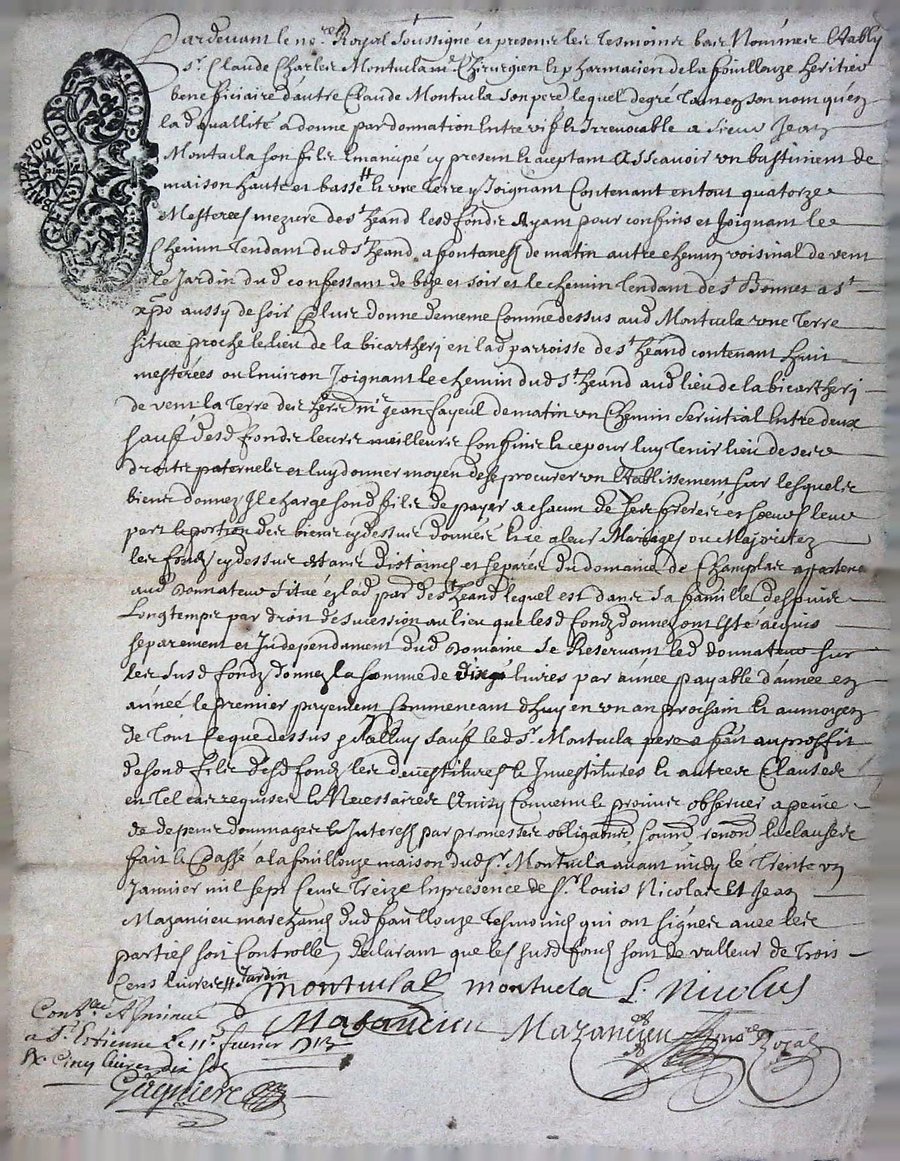 Pardevant le no.re Royal Soussigné et presens les tesmoins bas Nommés Estably
Sr. Claude Charles Montucla mre Chirurgien et pharmacien de la fouillouze heritier
beneficiaire dautre Claude Montucla son pere lequel de gré tant en son nom qu'en
lad quallité a donné par donnation Entre vifs et Irrevocable a Sieur Jean
Montucla son fils Emancipé cy present et aceptant Asscavoir un bastiment de
maison haute et basse # et une Terre y Joignant Contenant en tout quatorze
Mesterées mezure de st heand lesd fonds Ayant pour confins et Joignant le
Chemin Tendant dud st heand a fontanest de matin autre chemin voisinal de vent
le Jardin dud confessant de bize et soir et le chemin Tendant de st Bonnet a st
xpo aussy de soir Plus donne de meme Comme dessus aud Montucla une Terre
située proche le lieu de la bicartheri en lad parroisse de st heand contenant huit
mesterées ou Environ Joignant le chemin dud st heand aud lieu de la bicartheri
de vent la Terre des her. de mre jean fayeul de matin un Chemin Servitial Entre deux
sauf desd fonds leurs meilleurs Confins et ce pour luy Tenir lieu de ses
droits paternels et luy donner moyen de se procurer un Establissement sur lesquels
biens donnez Il charge sond fils de payer a chacun de ses freres et soeurs leur
part et portion des biens cy dessus donnés et ce a leurs Mariages ou Majoritez
les fonds cy dessus estans distaincts et separés du domaine de Champlas appartena
aud donnateur situé en lad par de st heand lequel est dans sa famille despuis
Longtemps par droit de sucession au lieu que lesd fonds donnez ont Esté acquis
separement et Independament dud Domaine Se Reservant led donnateur sur
les susd fonds donnez la somme de dix livres par année payable d'année en
année le premier payement Commencant d'huy en un an prochain et au moyen
de Tout ce que dessus Icelluy sauf led Sr. Montucla pere a fait au proffit
de sond fils desd fonds les devestitures et Investitures et autres Clauses
en Tel cas requises et Necessaires Ainsy Convenu et promis observer a peine
de depens dommages et Interest par promesses obligaons soumons renons et clauses
fait et Passé a la fouillouze maison dud Sr. Montucla avant midy le Trente un
Janvier mil sept Cents Treize En presence de Sr. louis Nicolas Et Jean
Mazancieu marchands dud fouillouze Tesmoins qui ont signés avec les
parties soit Controllé, declarant que les susd fonds sont de valleur de Trois
Cens livres # Jardin
montuclat montucla L. Nicolas
Mazancieu Mazancieu no.re Royal
Conlé. et Insinué
a St. Estienne Le 11e. fevrier 1713
Rx Cinq livres dix s
Gagniere
GENERATION DE LYON